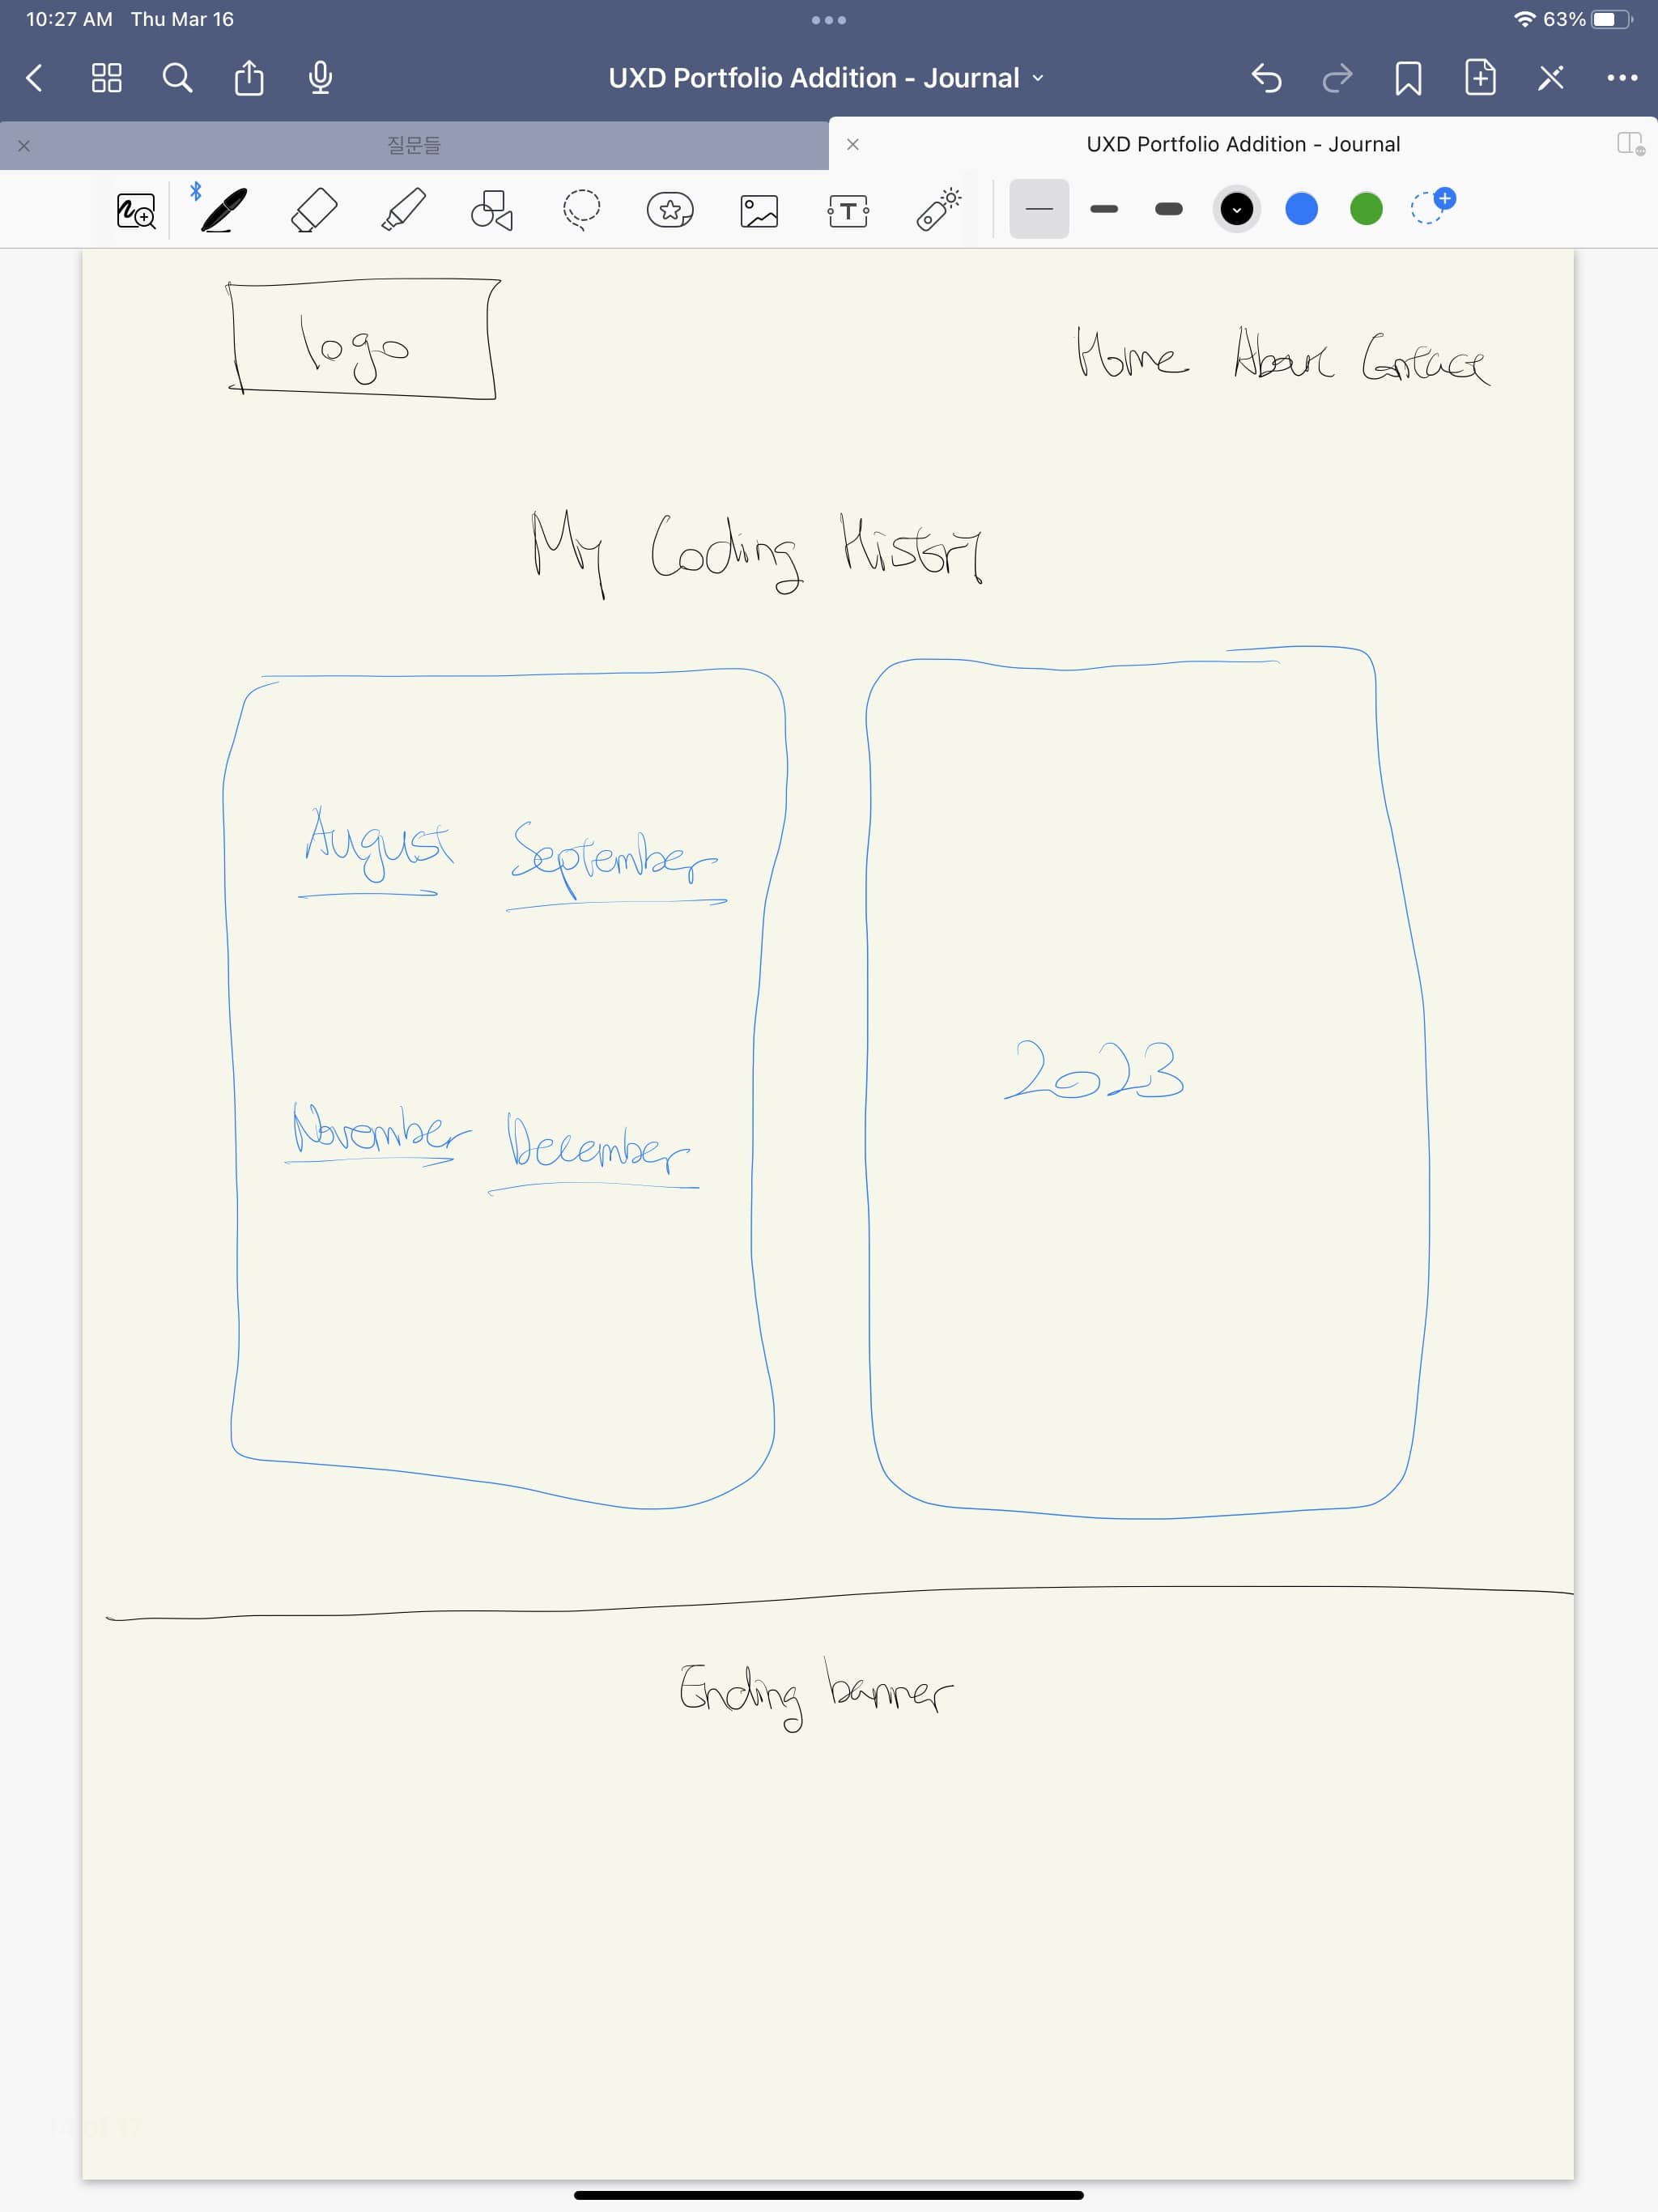 10:27 AM Thu Mar 16
63%
UXD Portfolio Addition - Journal
질문들
UXD Portfolio Addition - Journal
logo
Home About Contact
My Coding History
August September
November December
2023
Ending banner